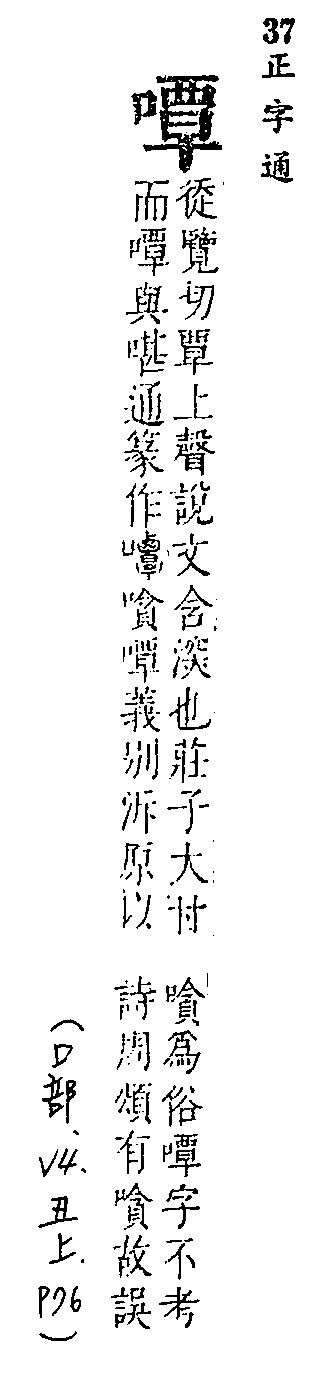 37正字通
嘾
從覽切覃上聲說文含深也莊子大甘
而嘾與啿通篆作嘾嗿嘾義別泝原以
嗿爲俗嘾字不考
詩周頌有嗿故誤
(口部、V4、丑上.P76)